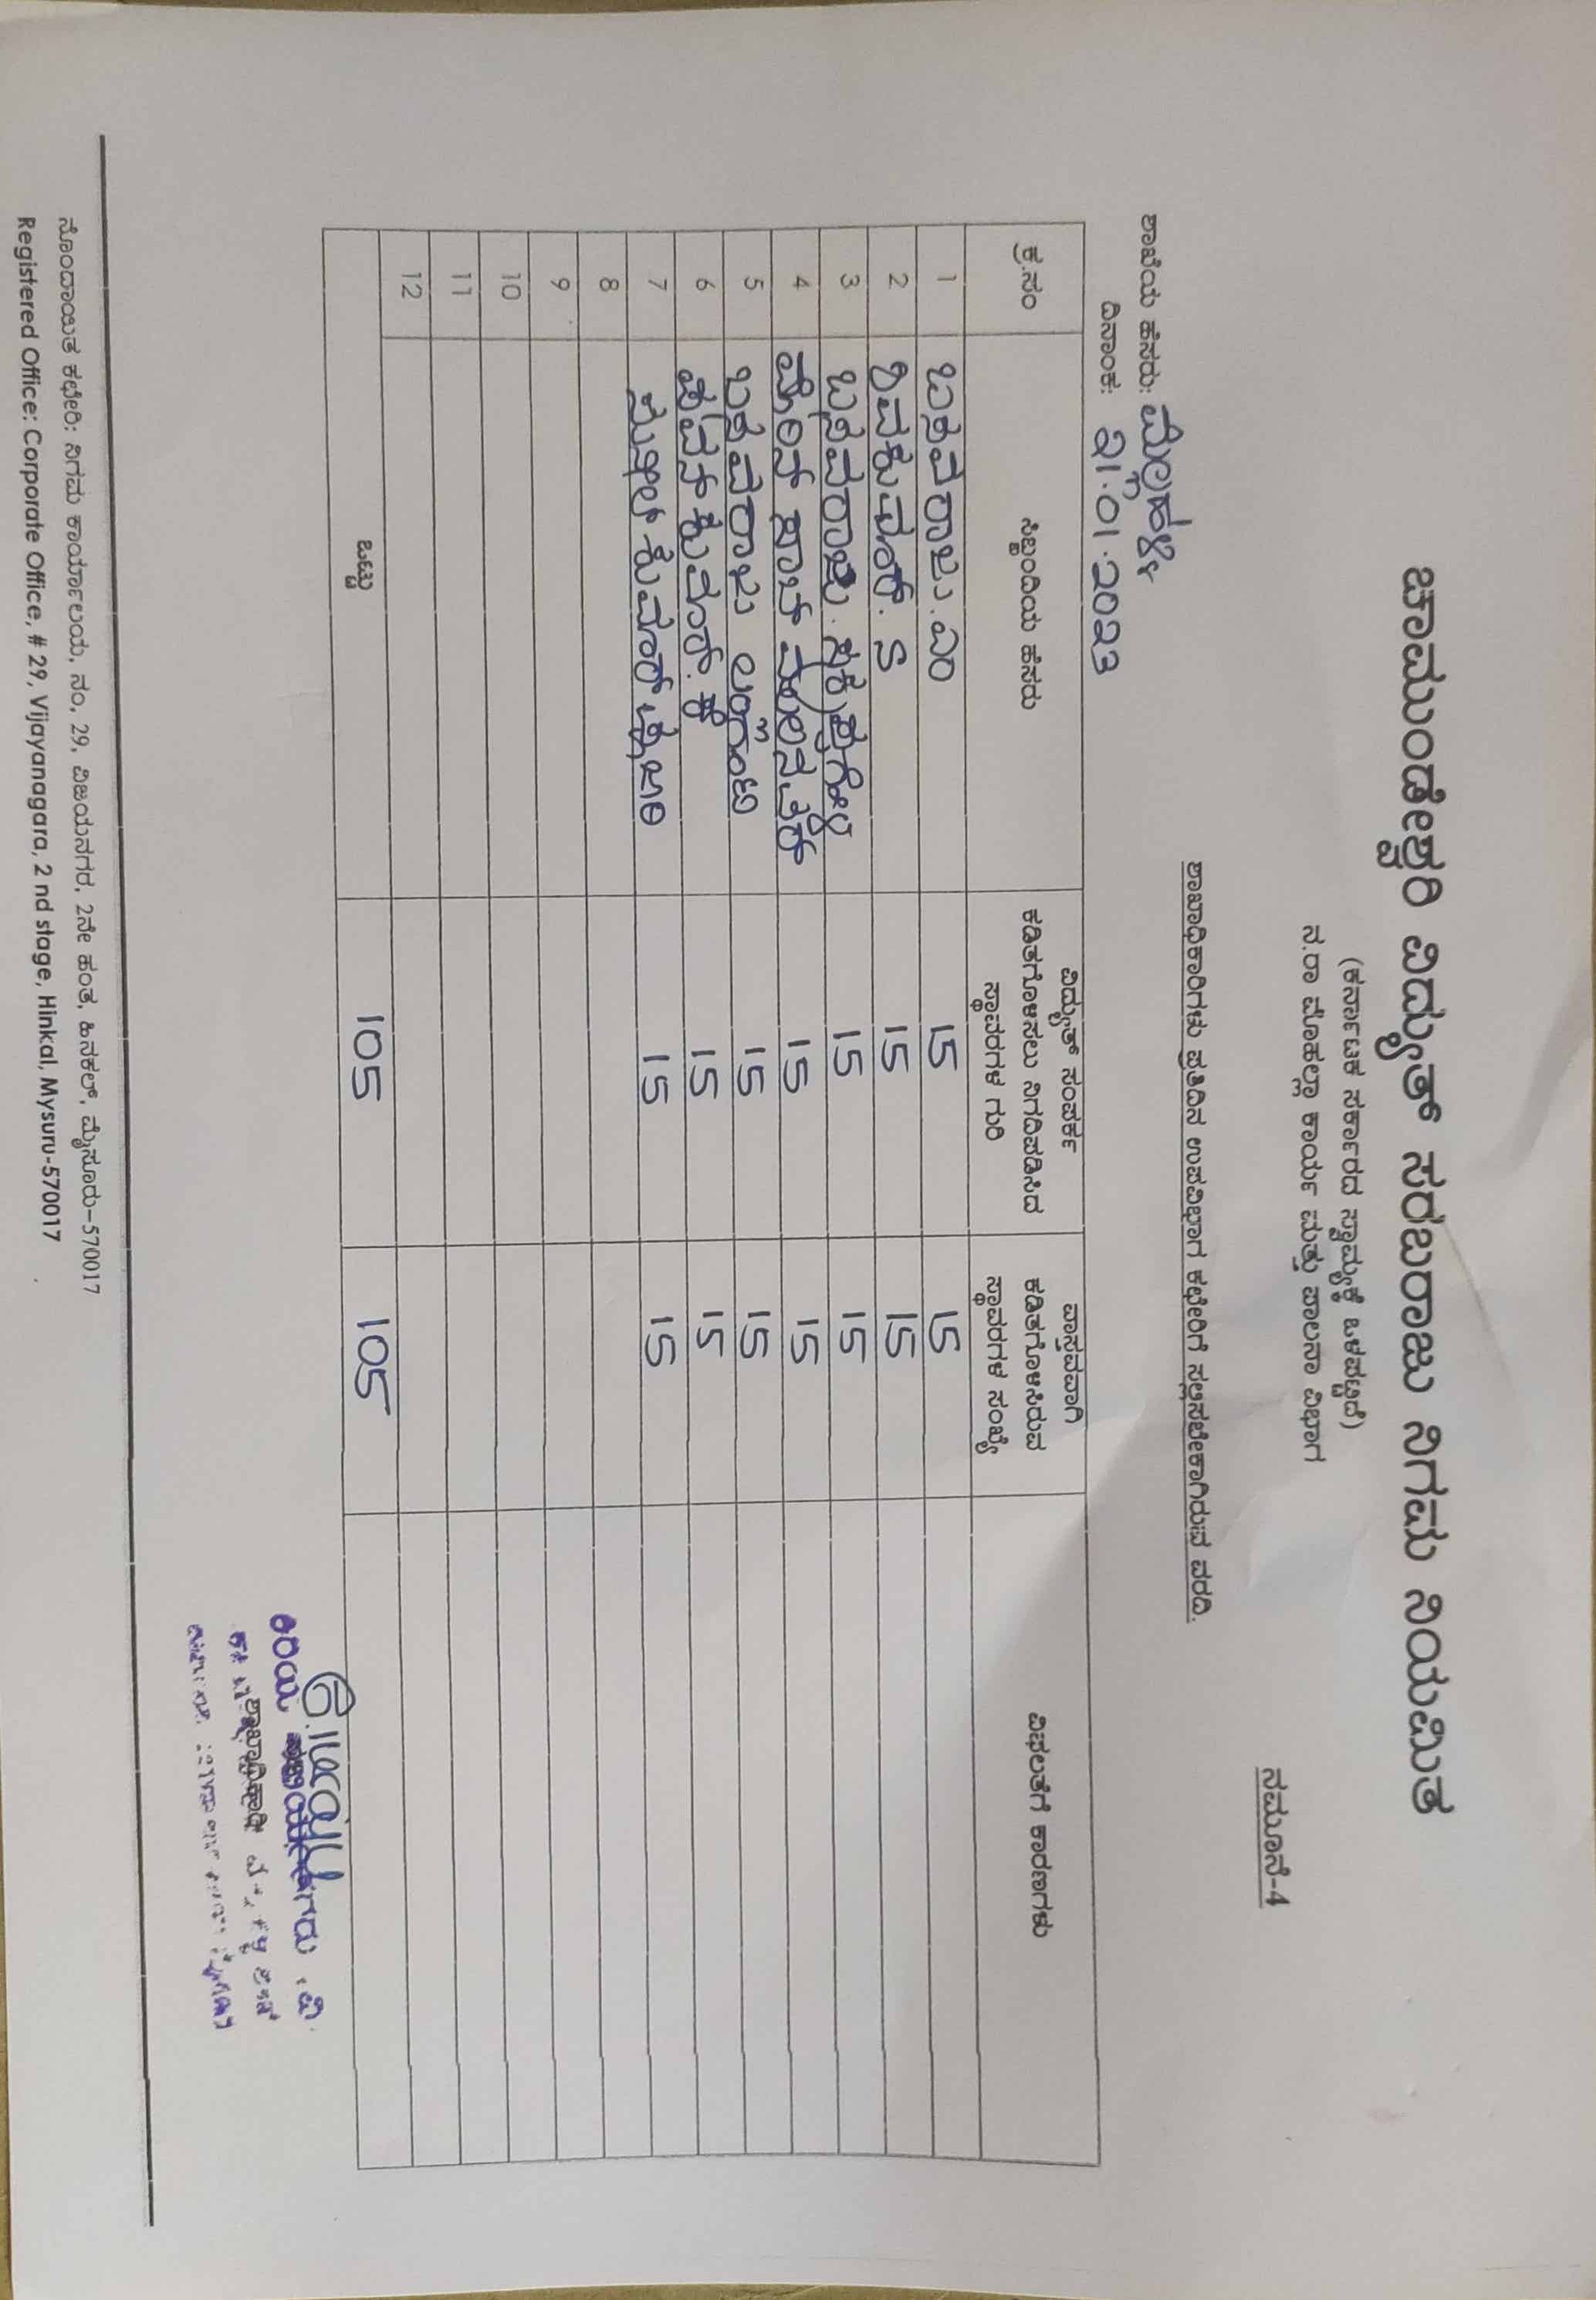 ಚಾಮುಂಡೇಶ್ವರಿ ವಿದ್ಯುತ್ ಸರಬರಾಜು ನಿಗಮ ನಿಯಮಿತ
(ಕರ್ನಾಟಕ ಸರ್ಕಾರದ ಸ್ವಾಮ್ಯಕ್ಕೆ ಒಳಪಟ್ಟಿದೆ)
ನ.ರಾ ಮೊಹಲ್ಲಾ ಕಾರ್ಯ ಮತ್ತು ಪಾಲನಾ ವಿಭಾಗ
ನಮೂನೆ-4
ಶಾಖಾಧಿಕಾರಿಗಳು ಪ್ರತಿದಿನ ಉಪವಿಭಾಗ ಕಛೇರಿಗೆ ಸಲ್ಲಿಸಬೇಕಾಗಿರುವ ವರದಿ.
ಶಾಖೆಯ ಹೆಸರು:
ದಿನಾಂಕ: 21.01.2023
ಕ್ರ.ಸಂ ಸಿಬ್ಬಂದಿಯ ಹೆಸರು ವಿದ್ಯುತ್ ಸಂಪರ್ಕ ಕಡಿತಗೊಳಿಸಲು ನಿಗದಿಪಡಿಸಿದ ಸ್ಥಾವರಗಳ ಗುರಿ ವಾಸ್ತವವಾಗಿ ಕಡಿತಗೊಳಿಸಿರುವ ಸ್ಥಾವರಗಳ ಸಂಖ್ಯೆ ವಿಫಲತೆಗೆ ಕಾರಣಗಳು
1 ಬಸವರಾಜು.ಎಂ 15 15
2 ಶಿವಕುಮಾರ್. S 15 15
3 ಬಸವರಾಜು. 15 15
4 15 15
5 ಬಸವರಾಜು 15 15
6 ಪವನ್ ಕುಮಾರ್. ಕೆ 15 15
7 ಸುನೀಲ್ ಕುಮಾರ್ ಪೂಜಾರಿ 15 15
8
9
10
11
12
ಒಟ್ಟು 105 105
ಕಿರಿಯ
ಶಾಖಾಧಿಕಾರಿ
ನೊಂದಾಯಿತ ಕಛೇರಿ: ನಿಗಮ ಕಾರ್ಯಾಲಯ, ನಂ. 29, ವಿಜಯನಗರ, 2ನೇ ಹಂತ, ಹಿನಕಲ್, ಮೈಸೂರು-570017
Registered Office: Corporate Office, # 29, Vijayanagara, 2 nd stage, Hinkal, Mysuru-570017